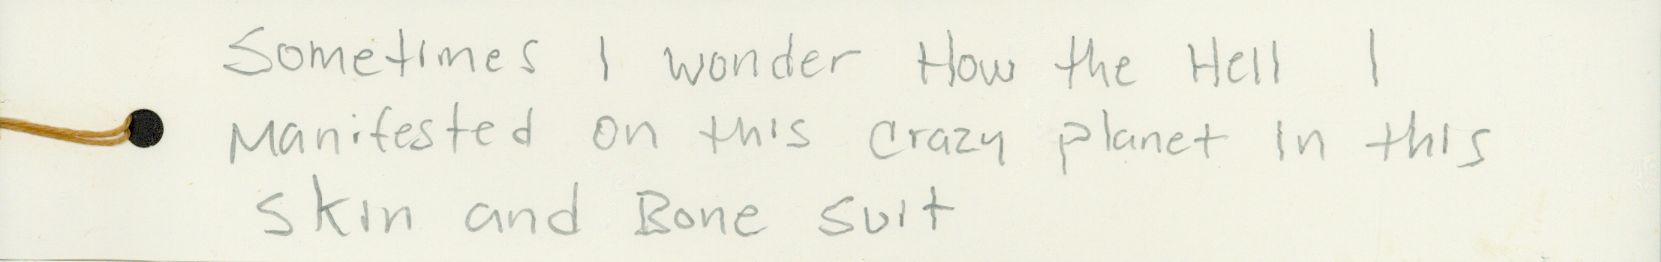 Sometimes I wonder How the Hell I
Manifested on this crazy planet in this
Skin and Bone suit